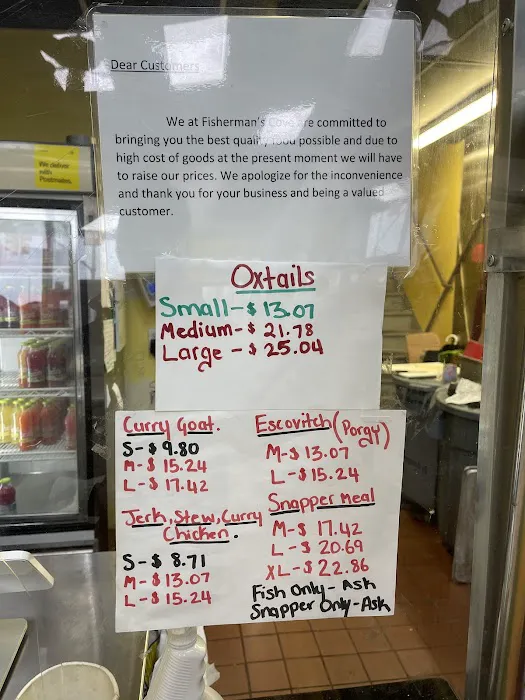 Dear Customers
We at Fisherman's Cove are committed to
bringing you the best quality food possible and due to
high cost of goods at the present moment we will have
to raise our prices. We apologize for the inconvenience
and thank you for your business and being a valued
customer.
We deliver
with
Postmates.
Oxtails
Small-$ 13.07
Medium-$ 21.78
Large - $ 25.04
Curry Goat.
S-$ 9.80
M-$ 15.24
L-$ 17.42
Jerk, Stew, Curry
Chicken.
S-$ 8.71
M-$ 13.07
L-$ 15.24
Escovitch (Porgy)
M-$ 13.07
L-$ 15.24
Snapper Meal
M-$ 17.42
L-$ 20.69
XL-$ 22.86
Fish Only - Ask
Snapper Only-Ask